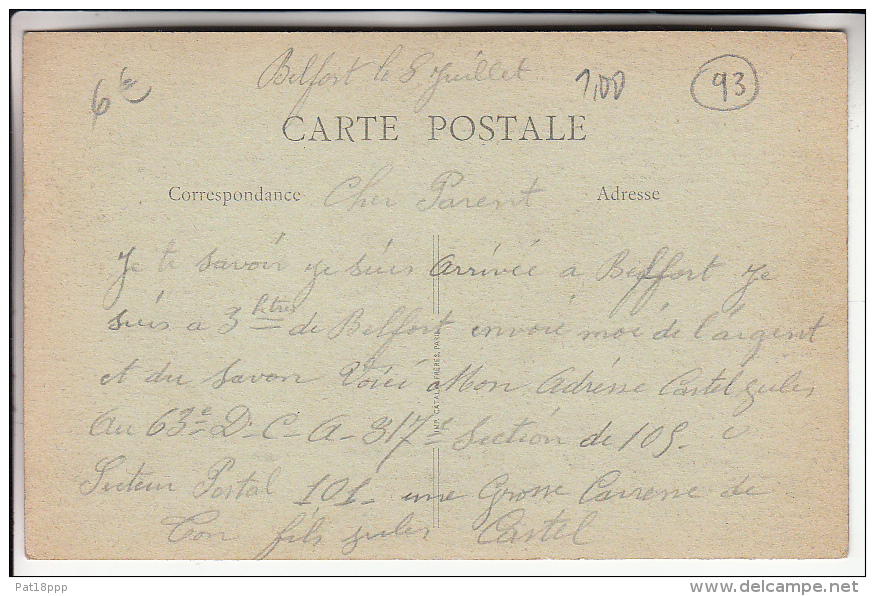 Belfort le 8 Juillet
6€
1,00
93
CARTE POSTALE
Correspondance
Cher Parent
Adresse
Je te savoir je suis Arrivée a Belffort je
suis a 3 litres de Belfort envoié moi de l'argent
et du savon Voici Mon Adresse Castel jules
Au 63e D-C-A-317e Section de 105
Secteur Postal 101 une Grosse Caresse de
Ton fils jules Castel
IMP. CATALA FRÈRES, PARIS
Pat18ppp
www.delcampe.net